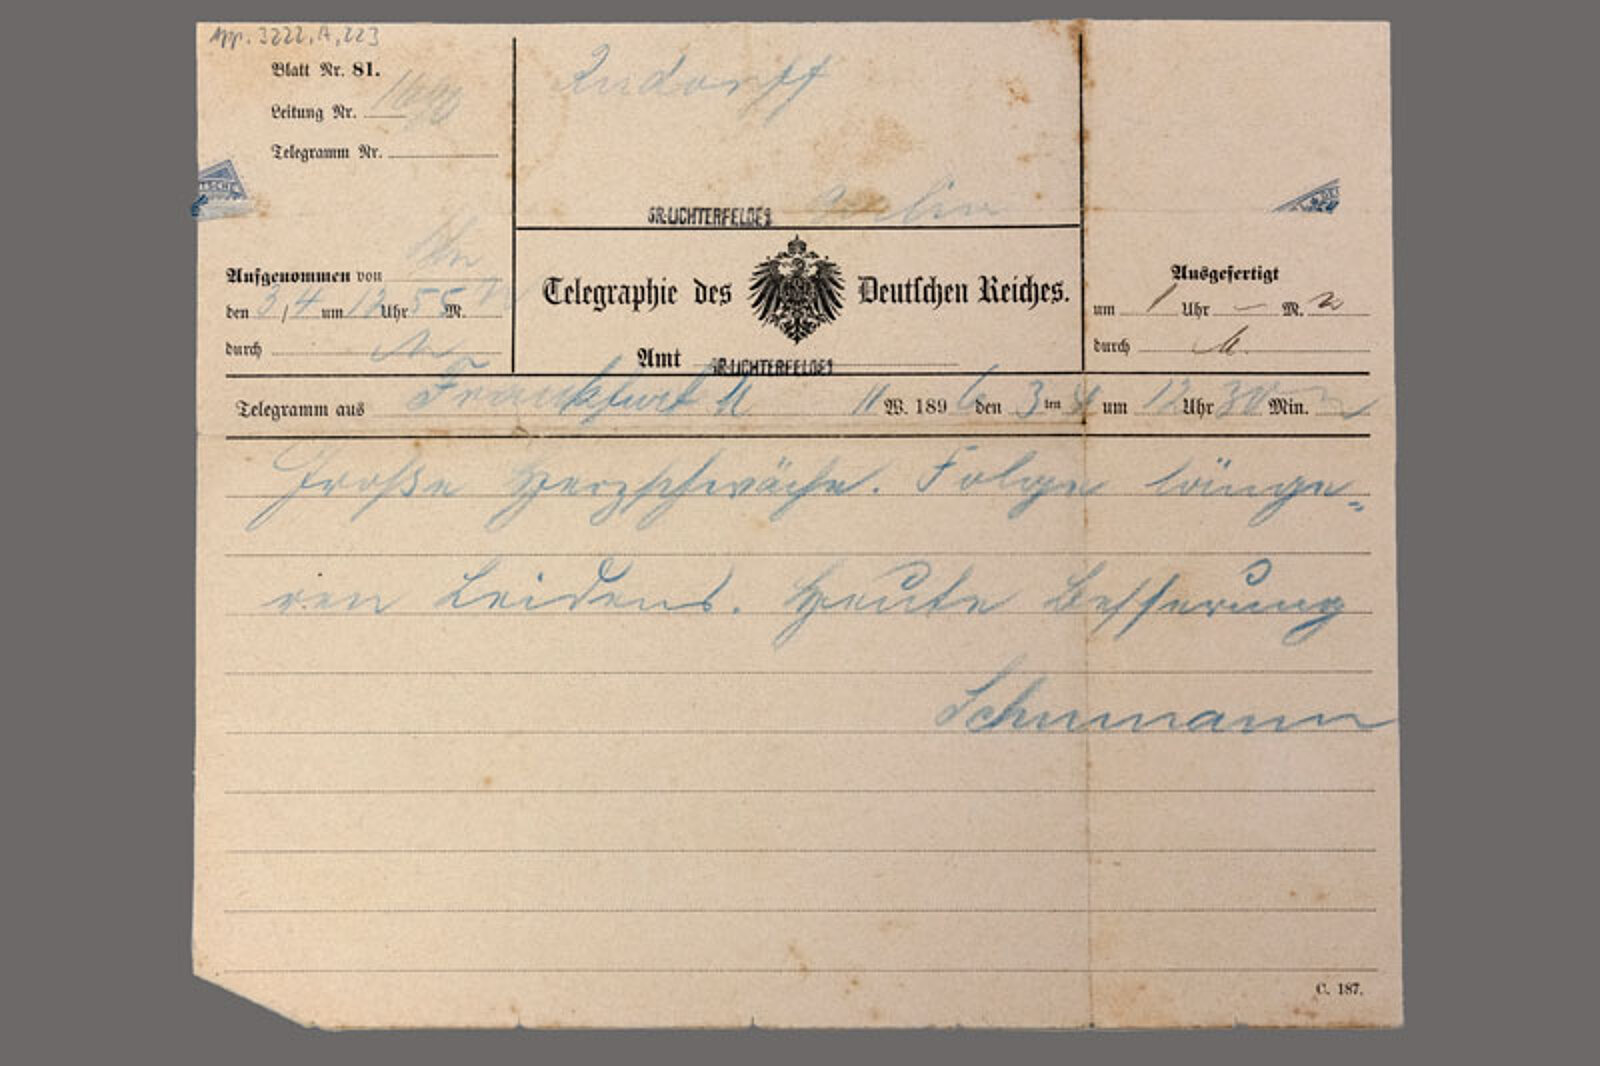 App. 3222, A, 223
Blatt Nr. 81.
Leitung Nr.
Telegramm Nr.
Rudorff
GR. LICHTERFELDE 1
Berlin
TSCHE
Aufgenommen von
den 3/4 um 12 Uhr 55 M.
durch
Telegraphie des Deutschen Reiches.
Amt GR. LICHTERFELDE 1
Ausgefertigt
um 1 Uhr – M.
durch
Telegramm aus Frankfurt M 11 W. 1896 den 3ten 4 um 12 Uhr 30 Min.
Große Herzschwäche. Folge länge=
ren Leidens. Heute Besserung
Schumann
C. 187.